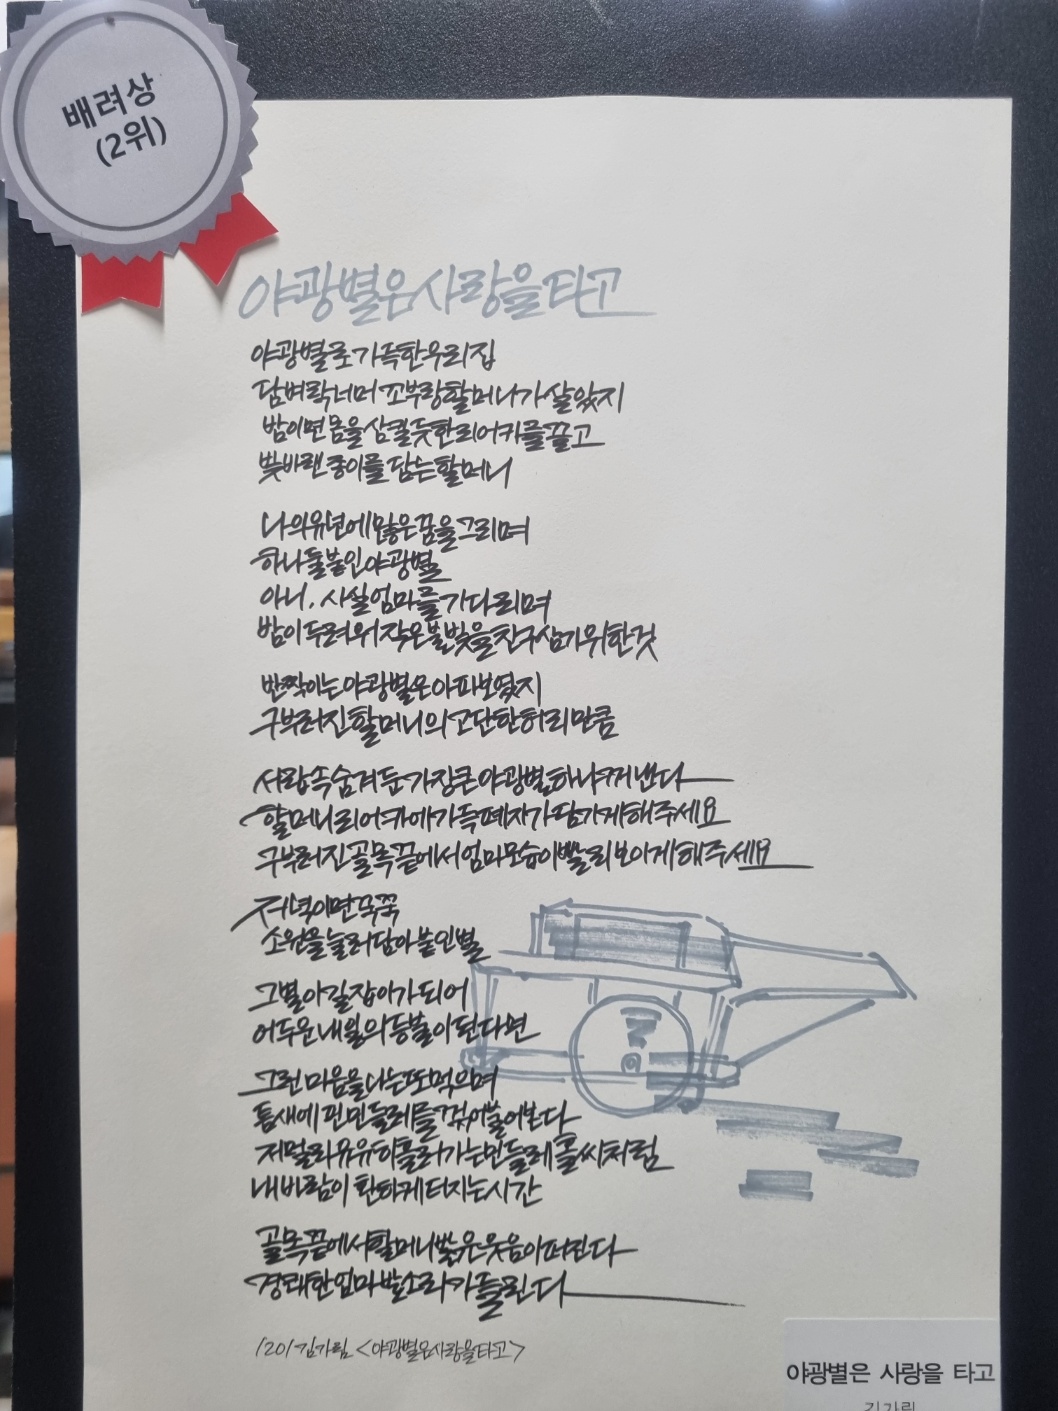 배려상
(2위)
야광별은 사랑을 타고
야광별로 가득한 우리집
담벼락 너머 꼬부랑 할머니가 살았지
밤이면 몸을 삼킬듯한 리어카를 끌고
빛바랜 종이를 담는 할머니
나의 유년에 많은 꿈을 그리며
하나 둘 붙인 야광별
아니, 사실 엄마를 기다리며
밤이 두려워 작은 불빛을 친구 삼기 위한 것
반짝이는 야광별은 아파보였지
구부러진 할머니의 고단한 허리만큼
서랍 속 숨겨둔 가장 큰 야광별 하나 꺼낸다
할머니 리어카에 가득 폐지가 담기게 해주세요
구부러진 골목 끝에서 엄마 모습이 빨리 보이게 해주세요
저녁이면 꾹꾹
소원을 눌러 담아 붙인 별
그 별이 길잡이가 되어
어두운 내일의 등불이 된다면
그런 마음을 나는 또 먹으며
틈새에 핀 민들레를 꺾어 불어본다
저 멀리 유유히 흘러가는 민들레 홀씨처럼
내 바람이 환하게 터지는 시간
골목 끝에서 할머니 밝은 웃음이 퍼진다
경쾌한 엄마 발소리가 들린다
김가림 <야광별은 사랑을 타고>
야광별은 사랑을 타고
김가림